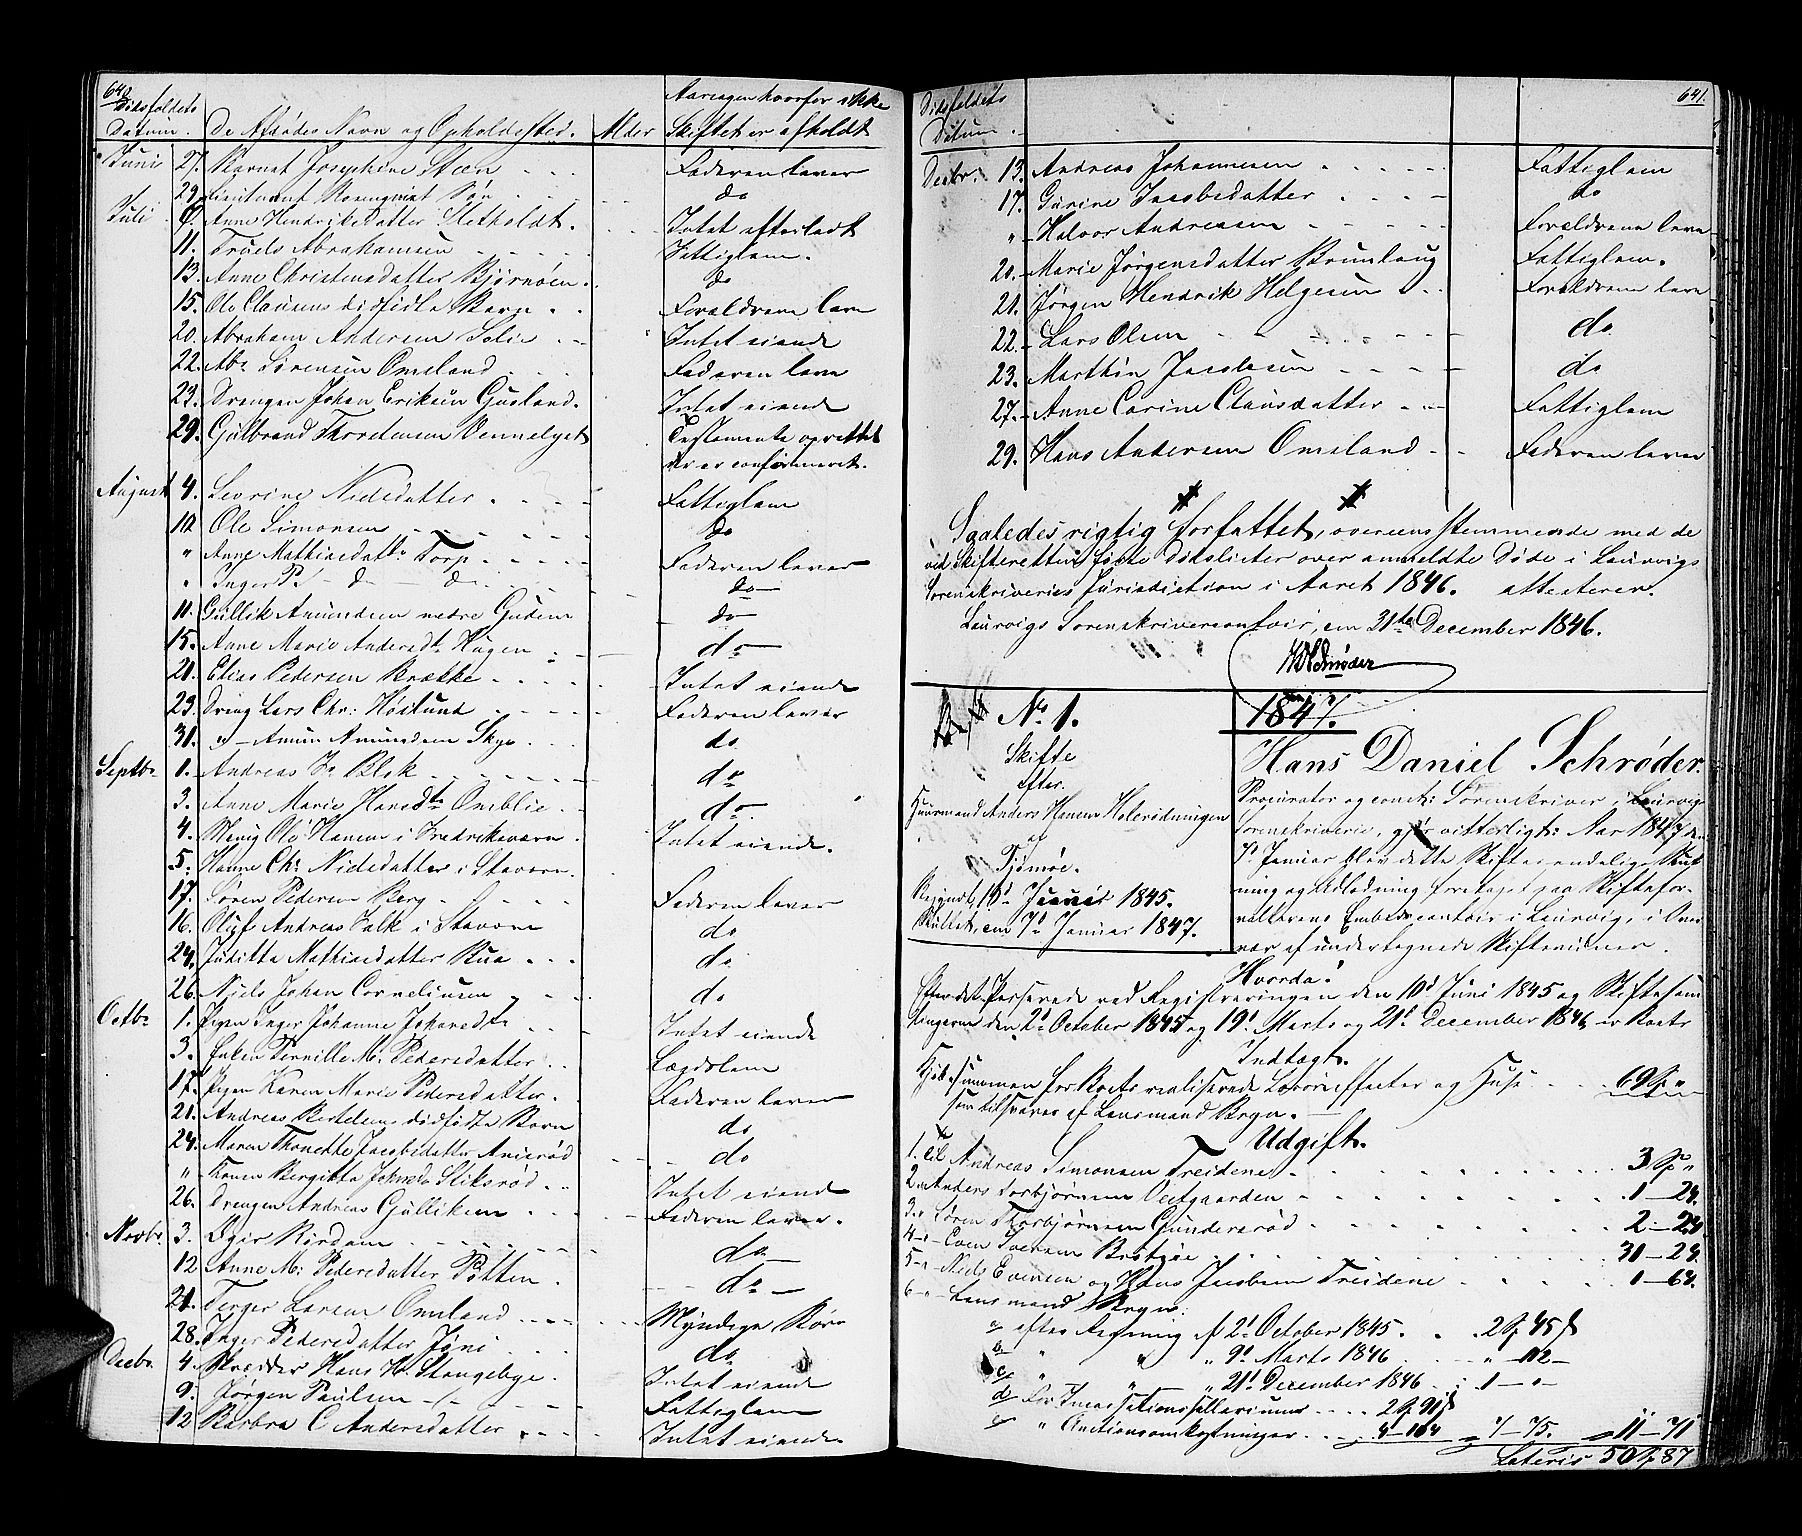 640
Dødsfaldets
Datum. De Afdødes Navn og Opholdssted. Alder Aarsagen hvorfor ikke
Skiftet er afholdt
Juni 27. Barnet Josephine Steen - - - Faderen lever
29. Lieutenant Rosenqvist Søn - - - do
Juli 9. Anne Hendriksdatter - - - Intet efterladt
11. Truels Abrahamsen - - - Fattiglem.
13. Anne Christensdatter Bjørnøen - - do
15. Ole Clausens dødfødte Barn - - Forældrene leve
20. Abraham Andersen Solie - - Intet eiende
22. Abr. Sørensen Omsland - - - Faderen lever
23. Drengen Johan Eriksen Gusland. Intet eiende
29. Gulbrand Thorstensen Vennelyst Testamente oprettet
der er confirmeret.
August 4. Severine Nilsdatter - - - Fattiglem
10 Ole Simonsen - - - do
" Anne Mathiasdatt. Torp - - - Faderen lever
" Inger P. do do - - - do
11. Gullik Amundsen nedre Gusland do
15. Anne Marie Andersdt. Haugen - - do
21. Elias Pedersen Brække - - - Intet eiende
23. Dreng Lars Chr: Høilund - - - Faderen lever
31. " - Amun Amundsen Skye - - - do
Septbr. 1. Andreas Blek - - - do
3. Anne Marie Hansdtr. Omblie - - do
4. Menig Ole Hansen i Fredriksværn - Intet eiende.
5. Hanne Chr. Nilsdatter i Stavern
17. Søren Pedersen Berg - - - Faderen lever
16. Oluf Andreas Falk i Stavern do
24. Juditta Mathiasdatter Rua - - - do
26. Niels Johan Corneliusen - - - do
Octbr. 1. Pigen Inger Johanne Johansdtr. Intet eiende
3. Enken Pernille M. Pedersdatter - - Lægdslem
17. Pigen Karen Marie Pedersdatter. Faderen lever
21. Andreas Bertelsens dødfødte Barn do
24. Maren Thonette Jacobsdatter Anierød do
" Konen Bergitte Johnsd. Stiksrød - - Intet eiende
26. Drengen Andreas Gulliksen - - - Faderen lever.
Novbr. 3. - - - do
12 Anne M. Pedersdatter Pøtten. do
21. Terger Larsen Omsland - - - Myndige Børn
28. Inger Pedersdatter Jøni - - - do
Decbr. 4. Skrædder Hans H. Stangebye. Intet eiende
9. Jørgen Paulsen - - Fattiglem
12 Barbra C Andersdatter - - - Intet eiende.
641.
Dødsfaldets
Datum.
Decbr. 13. Andreas Johannesen - - - Fattiglem
17. Gurine Jacobsdatter - - - do
" - Halvor Andreasen - - - Forældrene leve
20. Marie Jørgensdatter Brunlaug Fattiglem.
21. Jørgen Hendrik Helgesen - - Forældrene leve
22. Lars Olsen - - - do
23. Marthin Jacobsen - - - do
27. Anne Corine Clausdatter - - Fattiglem
29. Hans Andersen Omsland - - Faderen lever
Saaledes rigtig forfattet, overeensstemmende med de
ved Skifteretten førte Dødslister over anmeldte Døde i Laurvigs
Sorenskriveries Jurisdiction i Aaret 1846. attesterer.
Laurvigs Sorenskrivercontoir, den 31te December 1846.
Schrøder
No. 1.
Skifte
efter
Huusmand Anders Hansen Holerødningen
af
Tjømøe.
Begyndt, 10d Junii 1845.
Sluttet, den 7d Januar 1847.
1847.
Hans Daniel Schrøder.
Procurator og const: Sorenskriver i Laurvigs
Sorenskriverie, gjør vitterligt: Aar 1847 den
7d Januar blev dette Skiftes endelige Slut-
ning og Udlodning foretaget paa Skiftefor-
valterens Embedscontoir i Laurvig, i Over-
vær af undertegnede Skiftevidner.
Hvorda!
Efter det Passerede ved Registreringen den 10d Juni 1845 og Skiftesam-
lingerne den 2d October 1845 og 19d Marts og 21d December 1846 er Boets
Indtægt.
Kjøbesummen for Boets realiserede Løsøreeffecter og Huse - - 69 Sp "
som tilsvares af Lensmand Bryn.
Udgift.
1. til Andreas Simonsen Treidene - - - 3 Sp "
2 - " Anders Torbjørnsen Vestgaarden - - - 1 - 24.
3 - " Søren Thorbjørnsen Gundersrød - - - 2 - 24
4 - " Even Iversen Bratøe - - - 31 - 24.
5 - " Niels Evensen og Hans Jacobsen Treidene - - - 1 - 64.
6 - " Lensmand Bryn:
a, efter Regning af 2d October 1845. - - 2 Sp 45 s
b, " " " 9d Marts 1846 - - " - 112 -
c, " " " 21d December 1846 - - 1 - " -
d, For Incassationssallariums - - - 2 Sp 91 s
" Auctionsomkostninger - - - 4 - 104 7 - 75. 11 - 71
Lateris 50 Sp 87